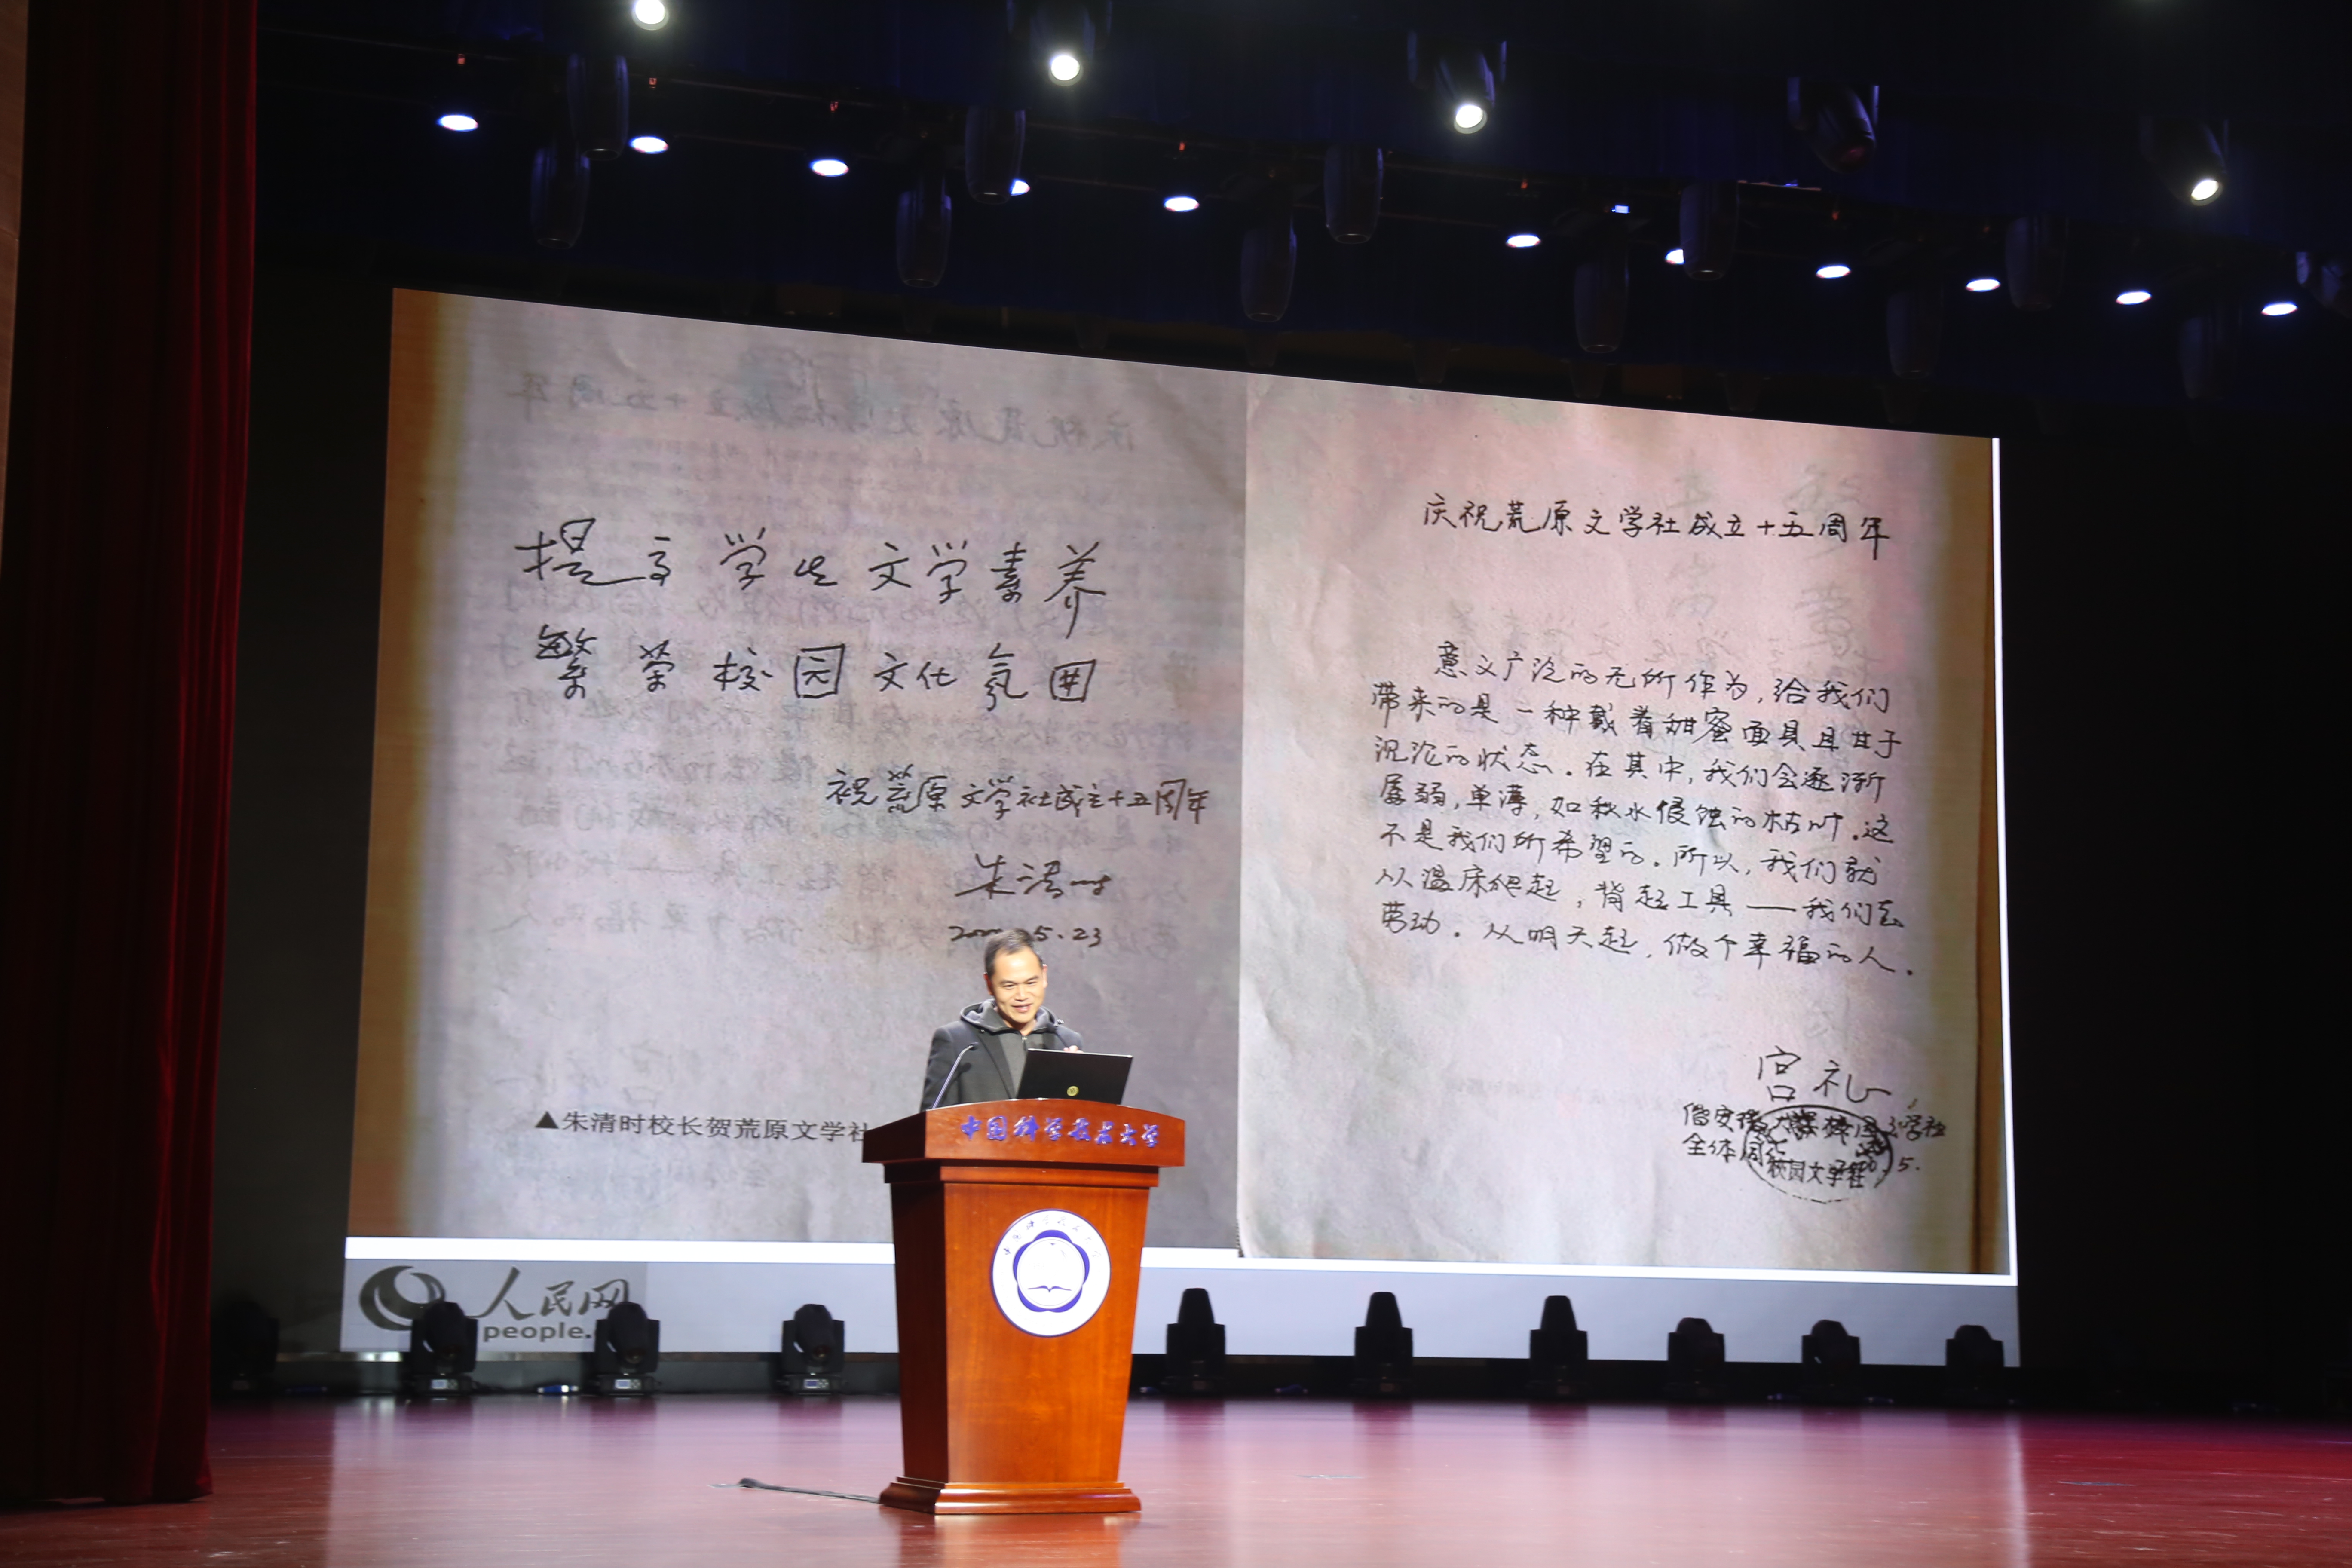 提高学生文学素养
繁荣校园文化氛围
祝荒原文学社成立十五周年
朱清时
5.23
▲朱清时校长贺荒原文学社
庆祝荒原文学社成立十五周年
意义广泛的无所作为,给我们
带来的是一种戴着甜蜜面具且甘于
沉沦的状态。在其中,我们会逐渐
孱弱,单薄,如秋水侵蚀的枯叶。这
不是我们所希望的。所以,我们就
从温床爬起,背起工具——我们去
劳动。从明天起,做个幸福的人。
宫礼
全体同仁
校园文学社
人民网
people.
中国科学技术大学